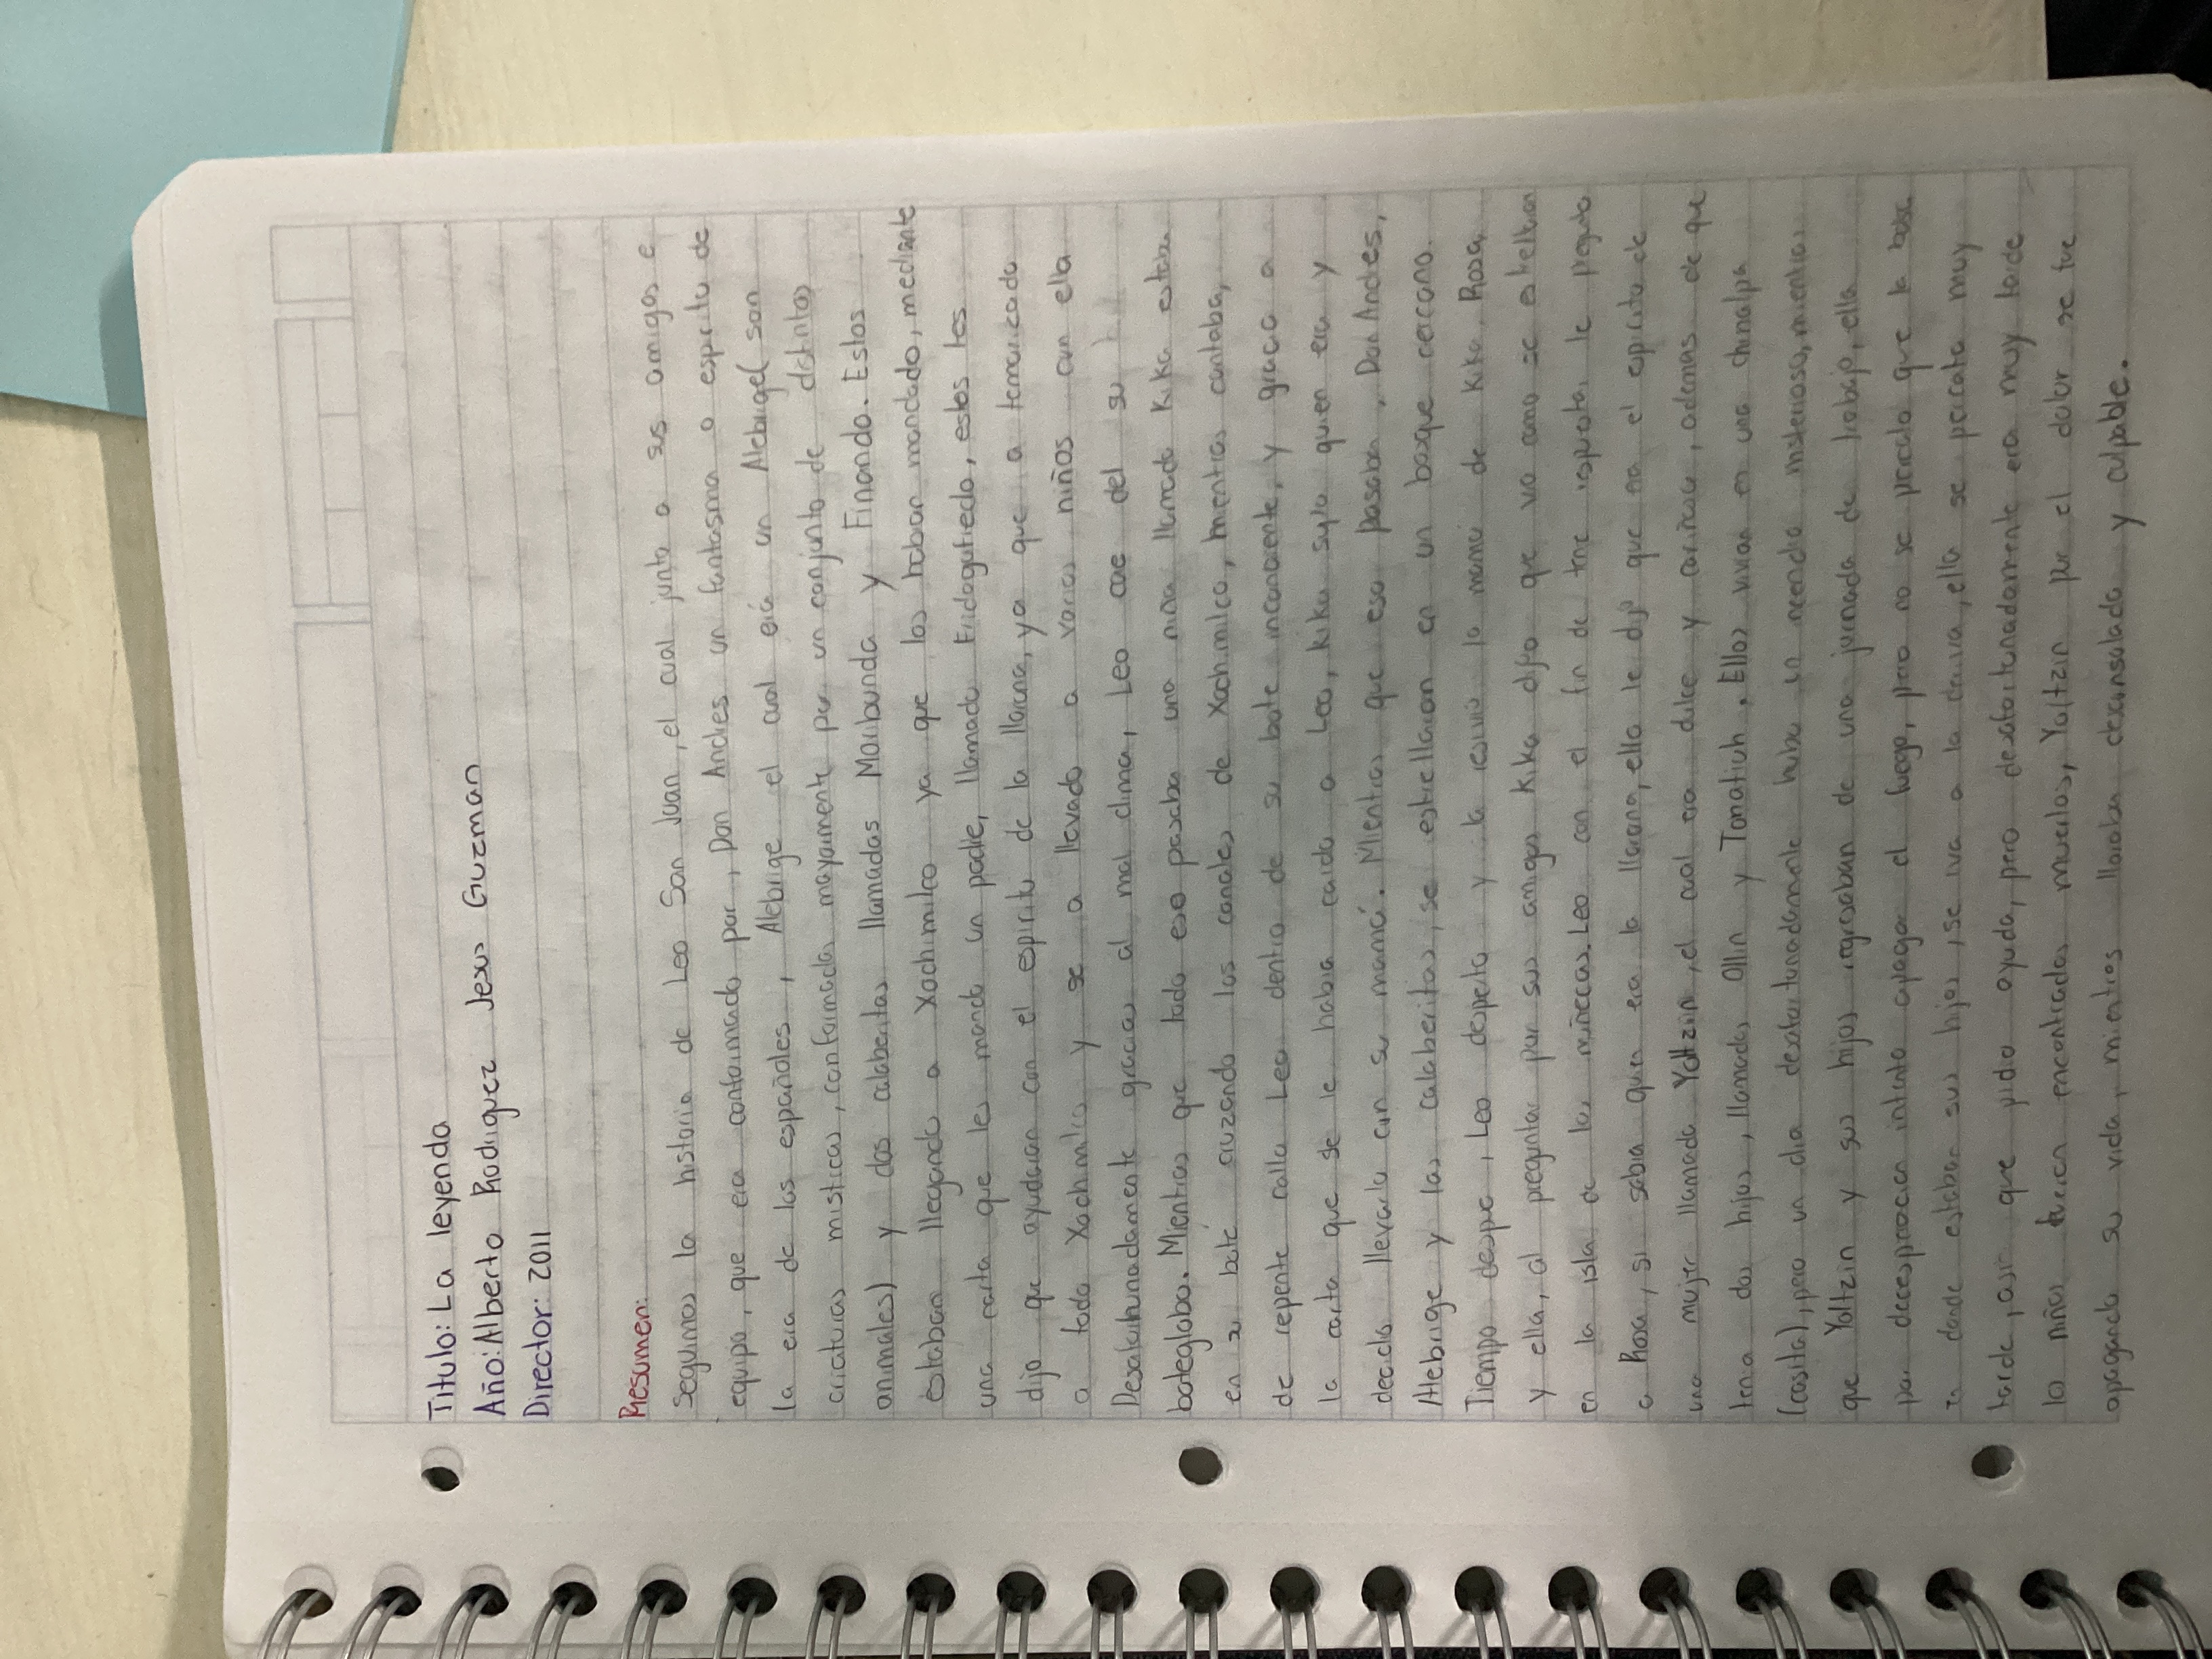 Titulo: La leyenda
Año: Alberto Rodriguez Jesus Guzman
Director: 2011
Resumen:
Seguimos la historia de Leo San Juan, el cual junto a sus amigos e
equipo, que era conformado por, Don Andres un fantasma o espiritu de
la era de los españoles, Alebrige el cual era un Alebrige( son
criaturas misticas, conformada mayormente por un conjunto de distintos
animales) y dos calaberitas llamadas Moribunda y Finando. Estos
estaban llegando a Xochimilco ya que los habian mandado, mediante
una carta que les mando un padre, llamado Fridogufredo, estos les
dijo que ayudaran con el espiritu de la llorona, ya que a temorizado
a todo Xochimilco y se a llevado a varios niños con ella
Desafortunadamente gracias al mal clima, Leo cae del su
boteglobo. Mientras que todo eso pasaba una niña llamada Kika estaba
en su bote cruzando los canales de Xochimilco, mientras cantaba,
de repente callo Leo dentro de su bote inconciente, y gracia a
la carta que se le habia caido a Leo, Kika supo quien era y
decidio llevarlo con su mamá. Mientras que eso pasaba, Don Andres,
Alebrige y las calaberitas, se estrellaron en un bosque cercano.
Tiempo despue, Leo desperto y la reviso la mama de Kika, Rosa,
y ella, al preguntar por sus amigos Kika dijo que vio como se estrellaron
en la isla de las muñecas. Leo con el fin de tene repuesta, le pregunto
a Rosa, si sabia quien era la llorona, ella le dijo que era el espiritu de
una mujer llamada Yoltzin, el cual era dulce y cariñosa, ademas de que
tenia dos hijos, llamados Ollin y Tonatiuh, Ellos vivian en una chinalpa
(casita), pero un dia desafortunadamente hubo un incendio misterioso, mientras
que Yoltzin y sus hijos regresaban de una jornada de trabajo, ella
por decespracion intento apagar el fuego, pero no se percato que la base
en donde estaban sus hijos, se iva a la deriva, ella se percata muy
tarde, asi que pidio ayuda, pero desafortunadamente era muy tarde
lo niños fueron encontrados muertos, Yoltzin por el dolor se fue
apagando su vida, mientras lloraba desconsolada y culpable.